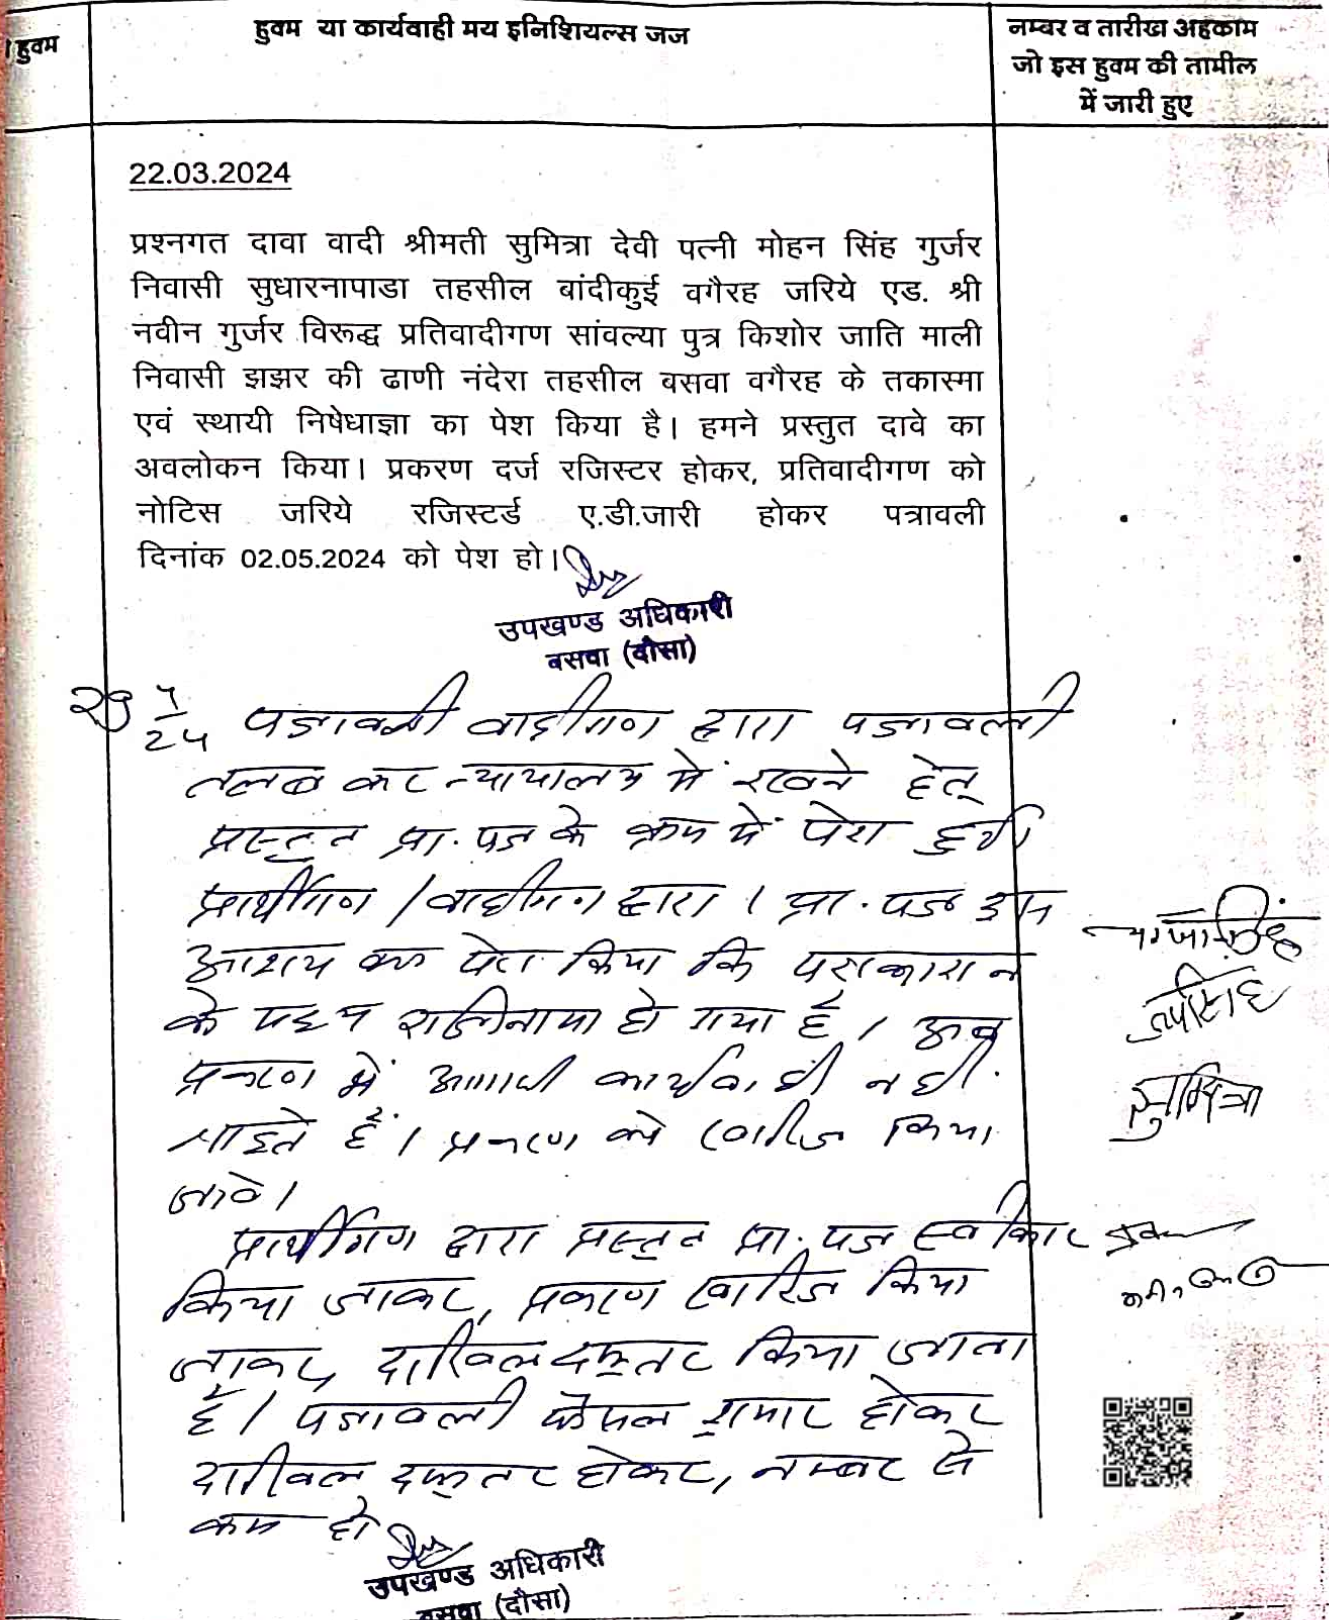 हुक्म
हुक्म या कार्यवाही मय इनिशियल्स जज
नम्बर व तारीख अहकाम
जो इस हुक्म की तामील
में जारी हुए
22.03.2024
प्रश्नगत दावा वादी श्रीमती सुमित्रा देवी पत्नी मोहन सिंह गुर्जर
निवासी सुधारनापाडा तहसील बांदीकुई वगैरह जरिये एड. श्री
नवीन गुर्जर विरूद्ध प्रतिवादीगण सांवल्या पुत्र किशोर जाति माली
निवासी झझर की ढाणी नंदेरा तहसील बसवा वगैरह के तकास्मा
एवं स्थायी निषेधाज्ञा का पेश किया है। हमने प्रस्तुत दावे का
अवलोकन किया। प्रकरण दर्ज रजिस्टर होकर, प्रतिवादीगण को
नोटिस जरिये रजिस्टर्ड ए.डी.जारी होकर पत्रावली
दिनांक 02.05.2024 को पेश हो।
उपखण्ड अधिकारी
बसवा (दौसा)
पत्रावली वादीगण द्वारा पत्रावली
तलब कर न्यायालय में रखने हेतू
प्रस्तुत प्रा. पत्र के क्रम में पेश हुयी
प्रार्थीगण / वादीगण द्वारा 1 प्रा. पत्र इस
आशय का पेश किया कि पक्षकारान
के मध्य राजीनामा हो गया है। अब
प्रकरण में आगामी कार्यवाही नही
चाहते हैं। प्रकरण को खारिज किया
जावे।
प्रार्थीगण द्वारा प्रस्तुत प्रा. पत्र स्वीकार
किया जाकर, प्रकरण खारिज किया
जाकर दाखिल दफ्तर किया जाता
है। पत्रावली फैसल शुमार होकर
दाखिल दफ्तर होकर, नम्बर से
कम हो
सुमित्रा
उपखण्ड अधिकारी
बसवा (दौसा)